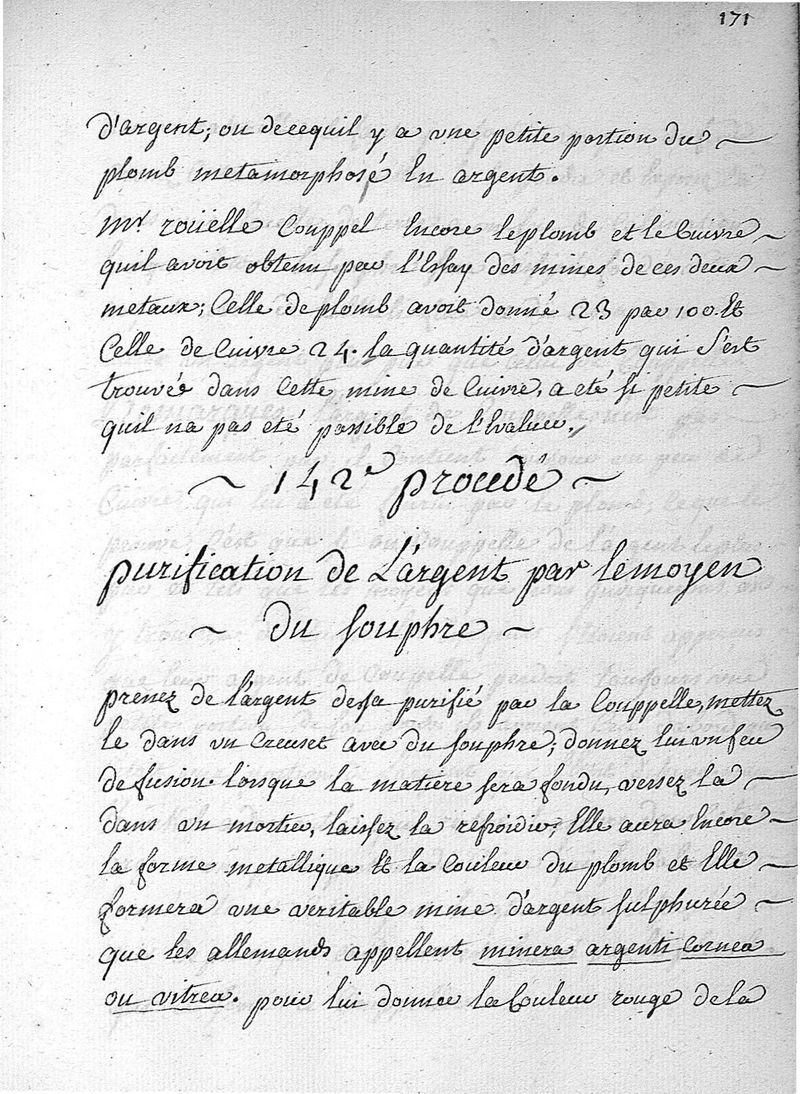 171
d'argent; ou de ce quil y a une petite portion du ~
plomb metamorphosé En argent.
Mr roüelle Couppel Encore le plomb et le Cuivre ~
quil avoit obtenu par l'Essay des mines de ces deux ~
metaux; Celle de plomb avoit donné 23 par 100. Et
Celle de Cuivre 24. la quantité d'argent qui s'est
trouvée dans Cette mine de Cuivre, a eté si petite ~
quil na pas eté possible de l'Evaluer.
~ 142e procedé ~
purification de L'argent par le moyen
~ du souphre ~
prenez de l'argent deja purifié par la Couppelle, mettez
le dans un Creuset avec du souphre; donnez lui un feu
de fusion. lorsque la matiere sera fondu, versez la ~
dans un mortier, laissez la refroidir; Elle aura Encore ~
la forme metallique Et la Couleur du plomb et Elle ~
formera une veritable mine d'argent sulphurée ~
que les allemands appellent minera argenti Cornea
ou vitrea. pour lui donner la Couleur rouge de la